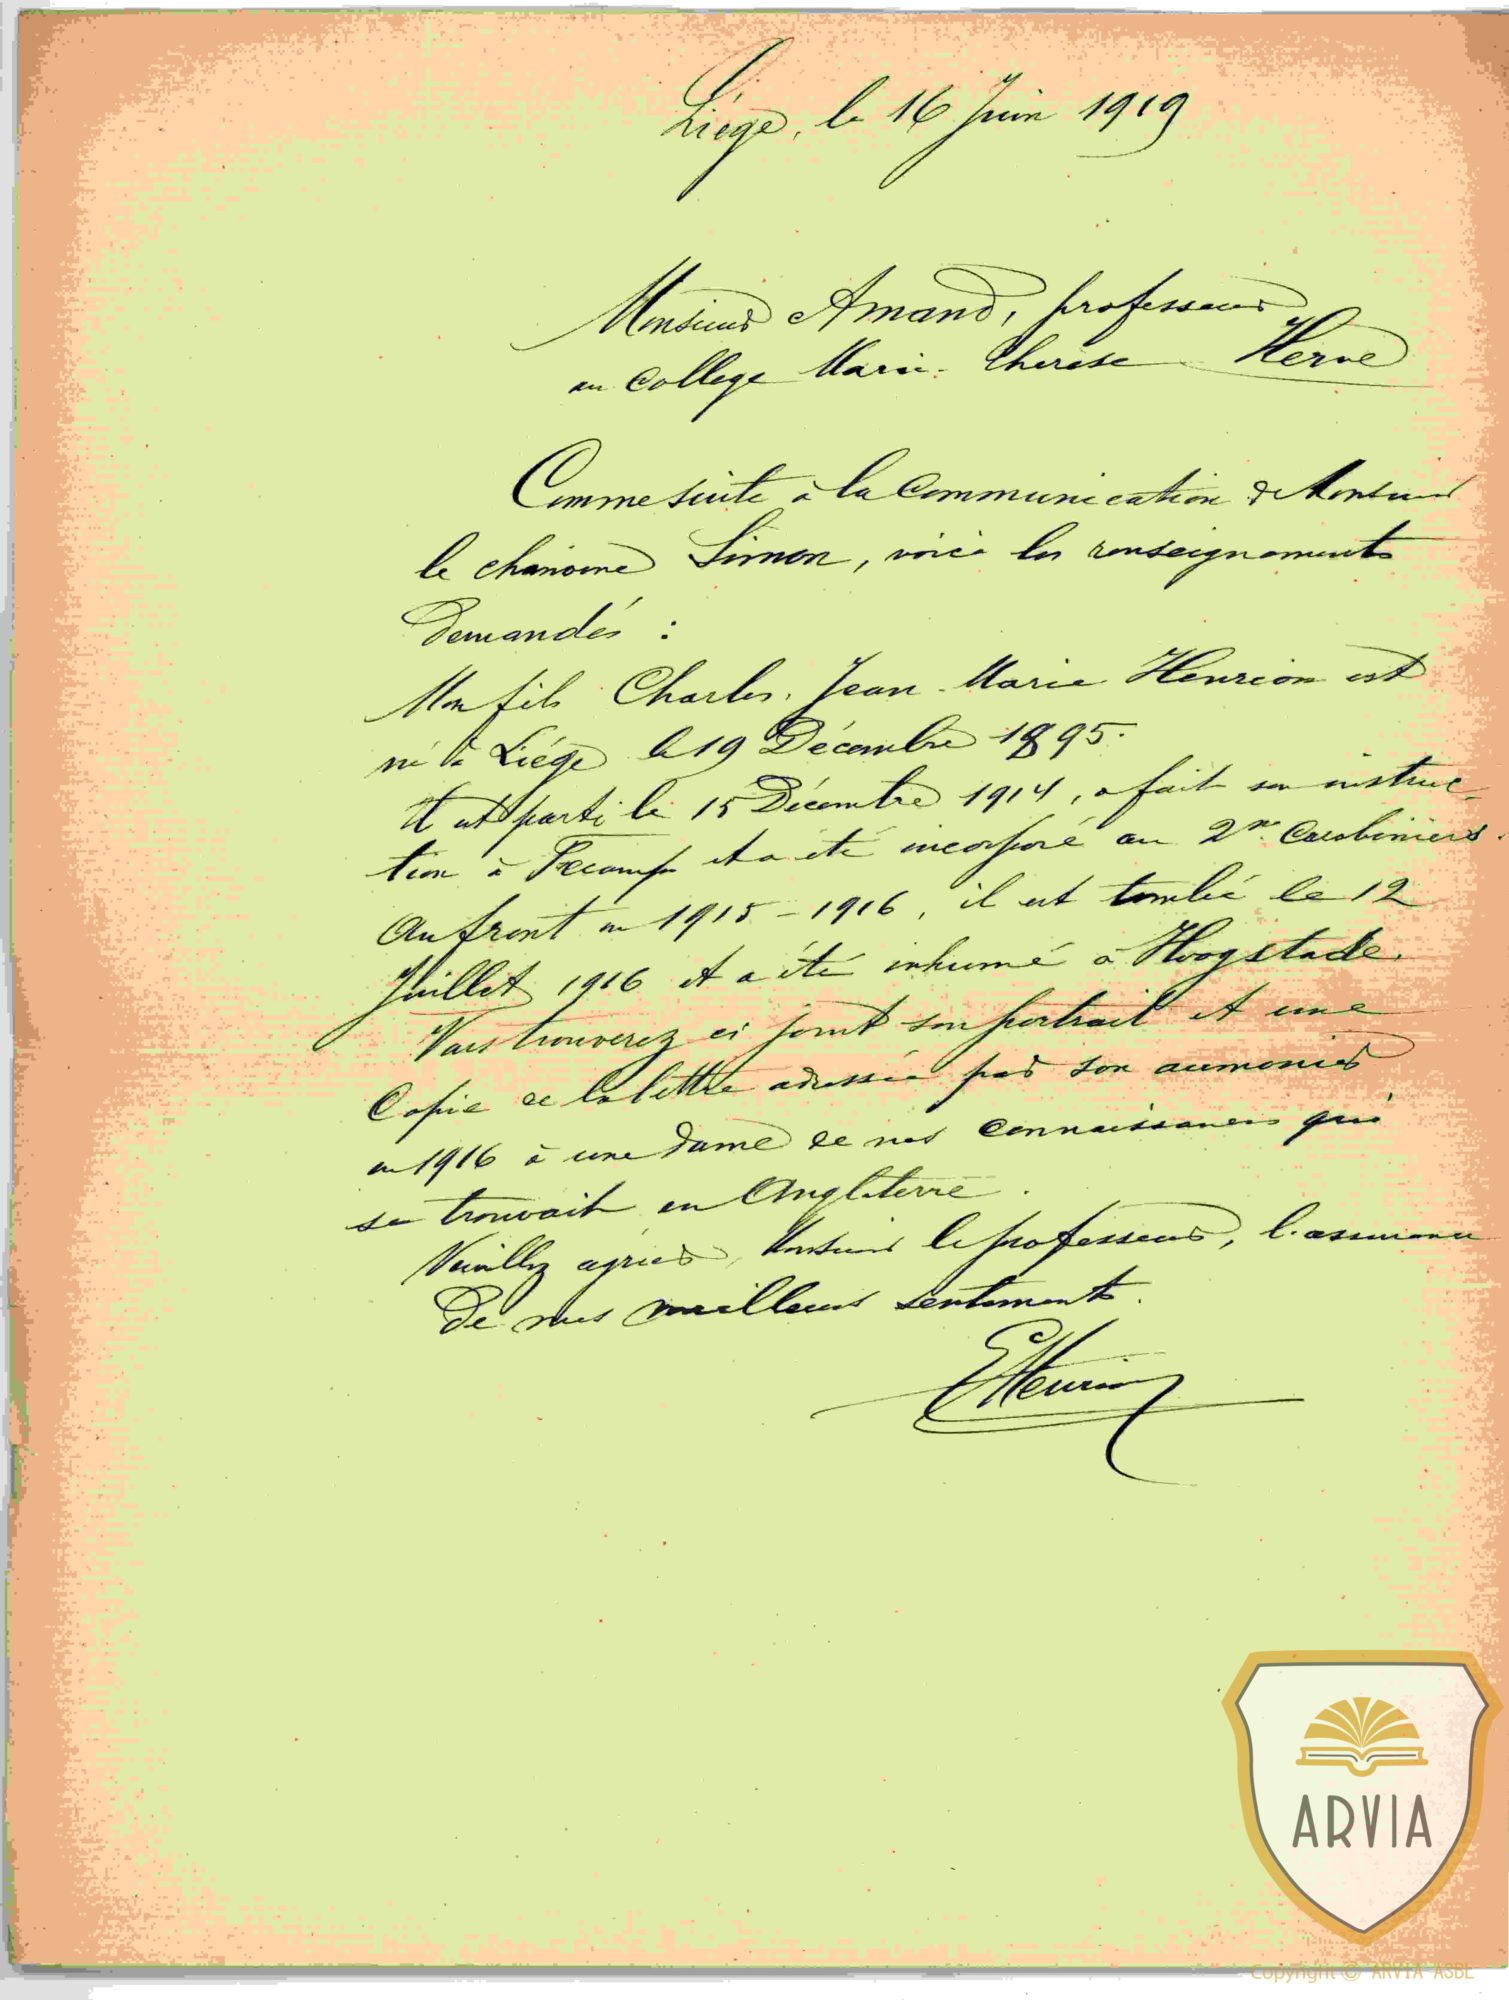 Liége, le 16 Juin 1919
Monsieur Amand, professeur
au College Marie-Therese Herve
Comme suite à la Communication de Monsieur
le chanoine Simon, voici les renseignements
demandés :
Mon fils Charles, Jean-Marie Henrion est
né à Liége le 19 Décembre 1895.
Il est parti le 15 Décembre 1914, a fait son instruc-
tion à Fecamp et a été incorporé au 2me Carabiniers.
Au front en 1915-1916, il est tombé le 12
Juillet 1916 et a été inhumé à Hoogstade.
Vous trouverez ci joint son portrait et une
Copie de la lettre adressée par son aumonier
en 1916 à une dame de nos connaissances qui
se trouvait en Angleterre.
Veuillez agréer, Monsieur le professeur, l'assurance
de mes meilleurs sentiments.
E Henrion
ARVIA
Copyright © ARVIA ASBL